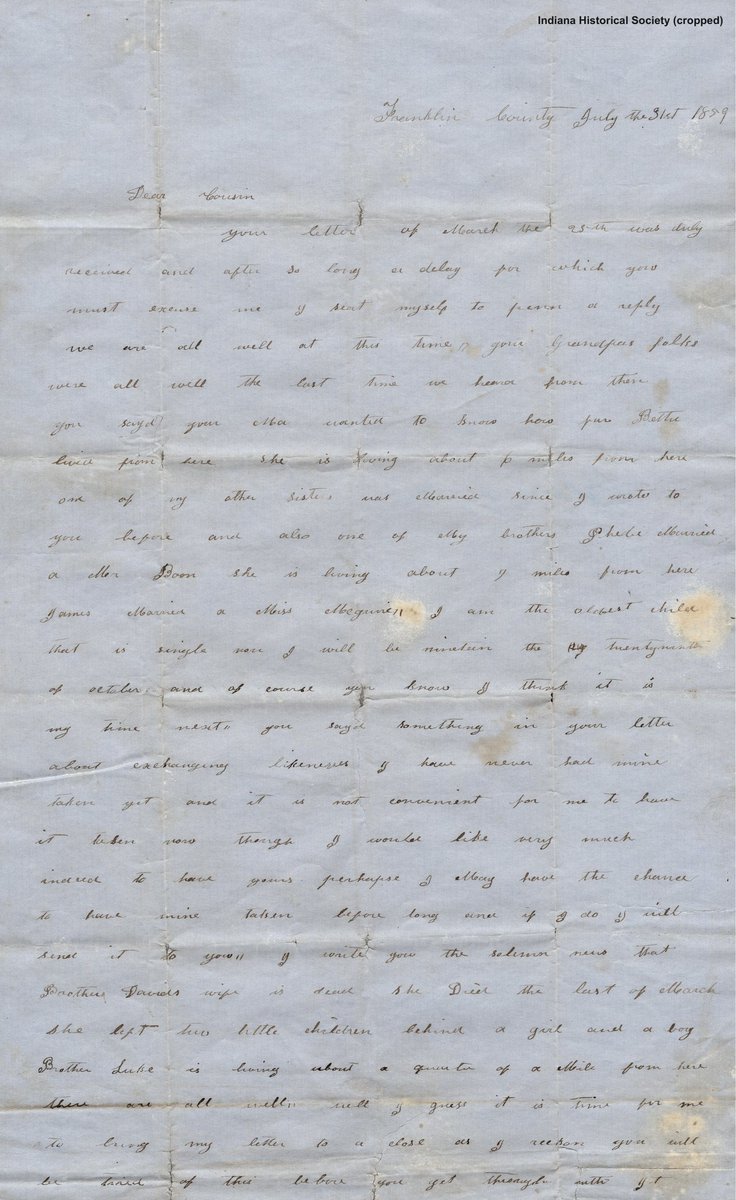 Indiana Historical Society (cropped)
Franklin County July the 31st 1859
Dear Cousin
your letter of March the 25th was duly
received and after so long a delay for which you
must excuse me I seat myself to penn a reply
we are all well at this time,, your Grandpas folks
were all well the last time we heard from them
you sayd your Ma wanted to know how fur Bettie
livid from here she is living about 6 miles from here
one of my other sisters was Married since I wrote to
you before and also one of My brothers Phebe Married
a Mr Boon she is living about 7 miles from here
James Married a Miss Mcguire,, I am the oldest child
that is single now I will be ninetein the twentyninth
of october and of course you know I think it is
my time next,, you sayd something in your letter
about exchanging likenesses I have never had mine
taken yet and it is not convenient for me to have
it taken now though I would like very much
indeed to have yours perhapse I May have the chance
to have mine taken before long and if I do I will
send it to you,, I write you the solemn news that
Brother Davids wife is dead she Died the last of March
she left two little children behind a girl and a boy
Brother Luke is living about a quarter of a Mile from here
there are all well,, well I guess it is time for me
to bring my letter to a close as I reckon you will
be tared of this before you get through with it